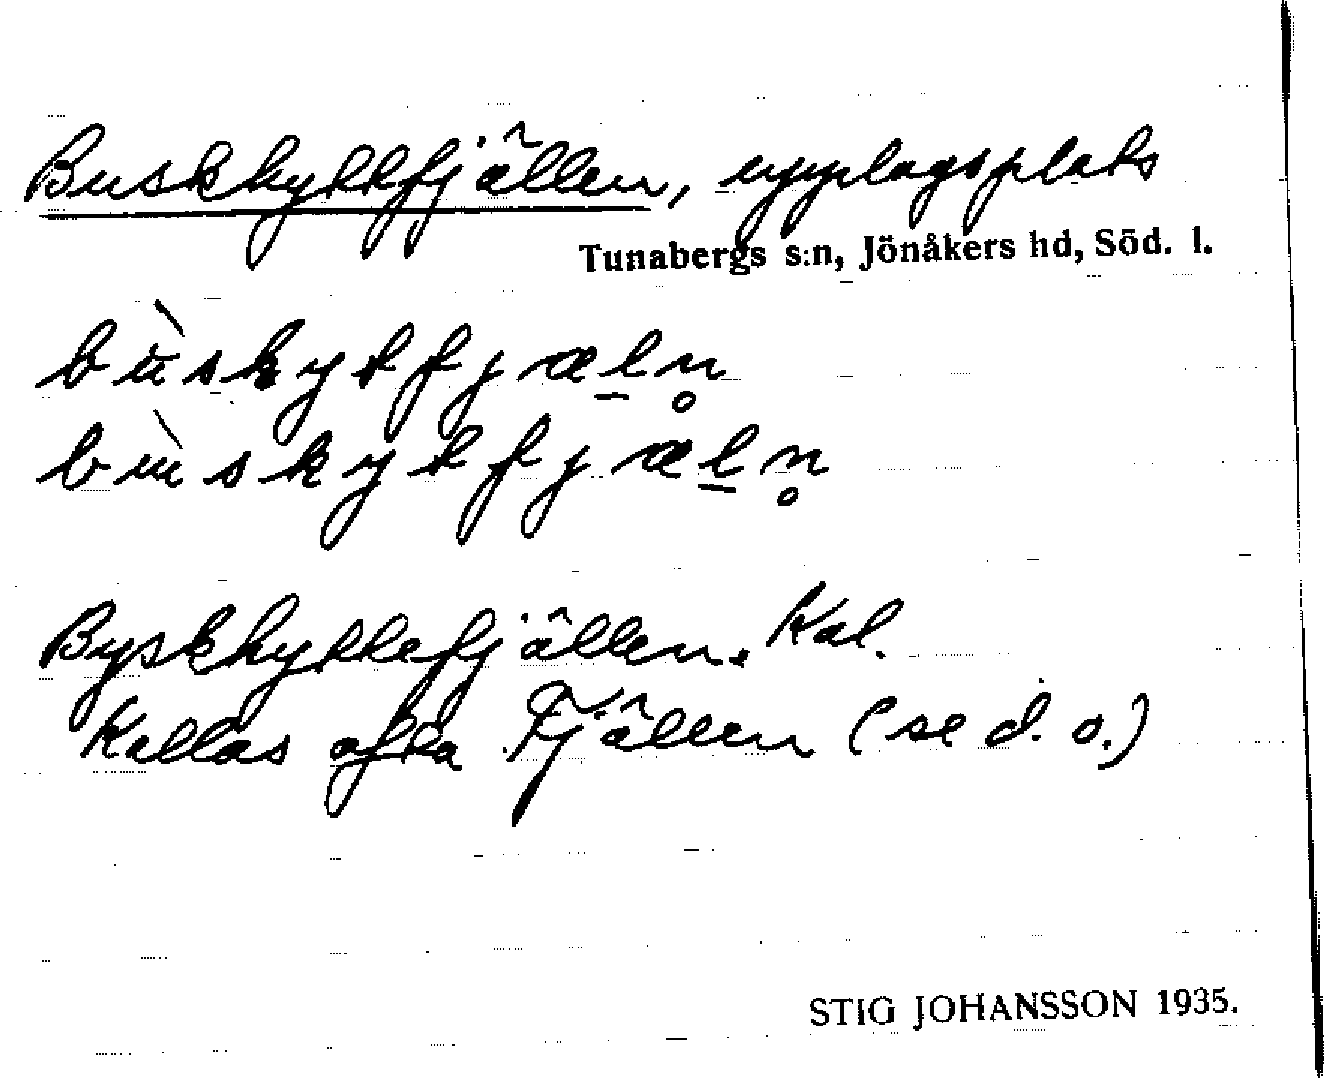 Buskhyttfjällen, upplagsplats
Tunabergs s:n, Jönåkers hd, Söd. l.
bùskytfjæl̲n̥
bùskytfjæl̲n̥
Byskhyttefjällen. Kal.
Kallas ofta Fjällen (se d. o.)
STIG JOHANSSON 1935.